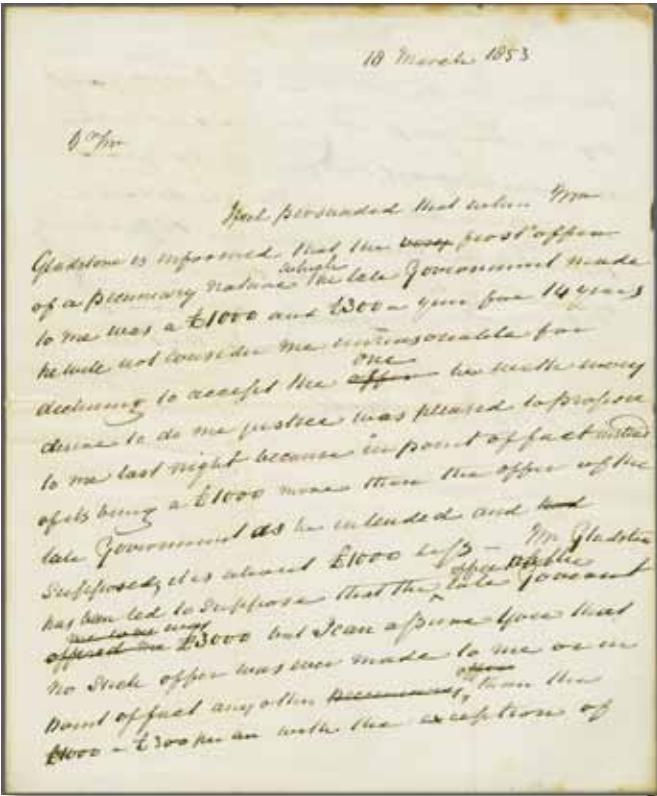 18 March 1853
Dr Sir
I feel persuaded that when Mr
Gladstone is informed that the very first offer
of a pecuniary nature which the late Government made
to me was a £1000 and £300 a year for 14 years
he will not consider me unreasonable for
declining to accept the offer one he with every
desire to do me justice was pleased to propose
to me last night because in point of fact instead
of its being a £1000 more than the offer of the
late Government as he intended and had
supposed, it is about £1000 less — Mr Gladstone
has been led to suppose that the offer of the late Government
offered me to me was £3000 but I can assure you that
no such offer was ever made to me or in
point of fact any other pecuniary offer, than the
£1000 & £300 per an with the exception of